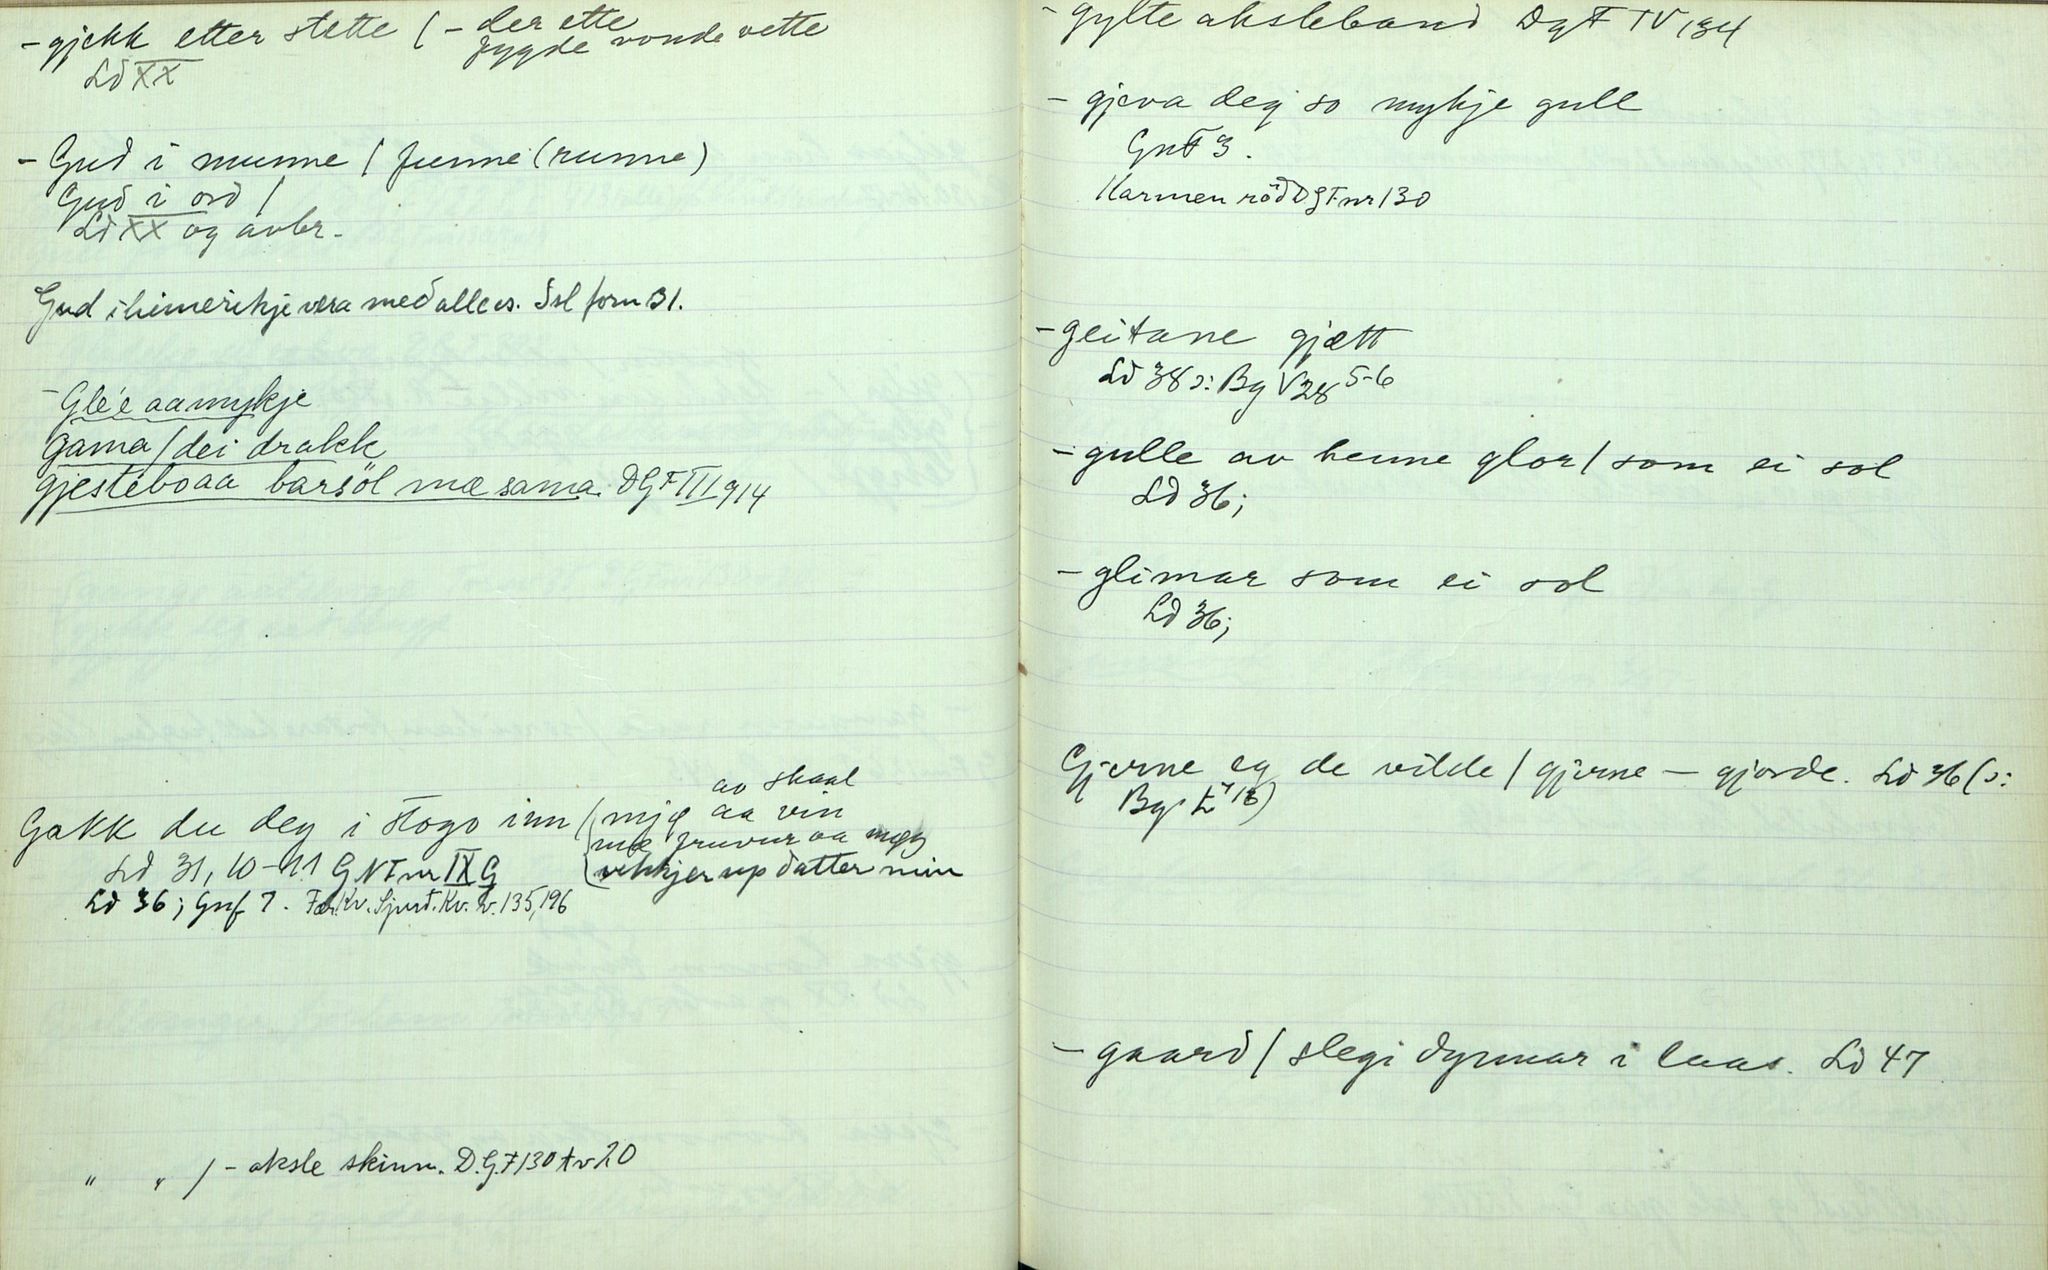 - gjekk etter stette / - der ette
fygde vonde vette
Ld XX
- Gud i munne / funne (runne)
Gud i ord /
Ld XX og avbr.
Gud i himerikje vera med alle os. Ssl forn 31.
- Gle'e aa mykje
gama / dei drakk
gjesteboaa barsöl mæ sama. DGF III 914
Gakk du deg i stogo inn / mjø aa vin
av skaal
mæ fruvur aa møy
vekkjer up datter min
Ld 31, 10-11 GNF nr IX G
Ld 36; Gnf 7. Fær. Kv. Sjurd. Kv. v. 135, 196
" " / - aksle skinn. D.G.F 130 A v 20
- gylte aksleband DgF IV 134
- gjeva deg so mykje gull
GnF 3.
Karmen röd DgF nr 130
- geitane gjætt
Ld 38 ɔ: Bg V 28 5-6
- gulle av henne glor / som ei sol
Ld 36;
- glimar som ei sol
Ld 36;
Gjerne eg de vilde / gjerne - gjorde. Ld 36 (ɔ:
Bg.
- gaard / slegi dynnar i laas. Ld 47